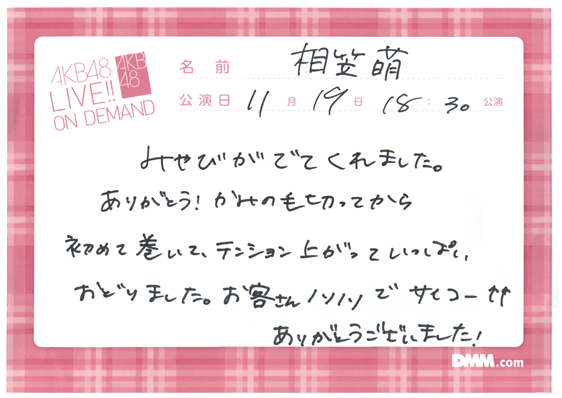 AKB48
LIVE!!
ON DEMAND
AKB
48
名前 相笠萌
公演日 11月19日 18:30公演
みやびがでてくれました。
ありがとう！かみの毛切ってから
初めて巻いて、テンション上がっていっぱい
おどりました。お客さんノリノリでサイコー↑↑
ありがとうございました！
DMM.com